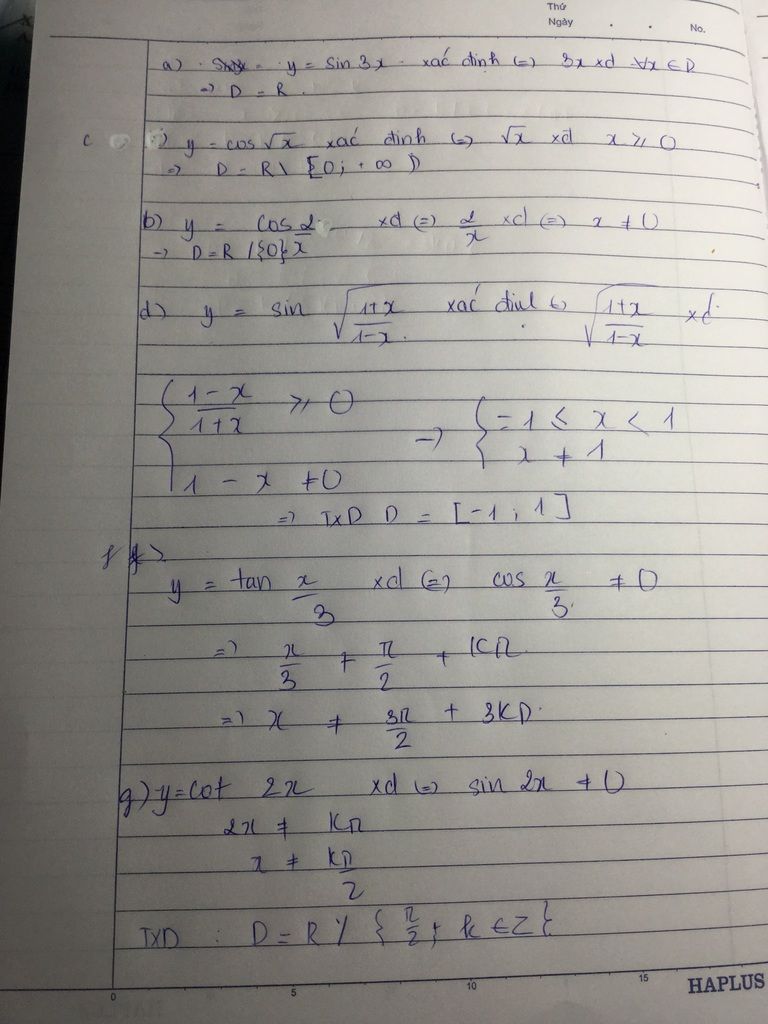 Thứ
Ngày . . No.
a) y = sin 3x xác định (=) 3x xđ ∀x ∈ D
=> D = R.
c ) y = cos √x xác định (=) √x xđ x ≥ 0
=> D = R \ [0; +∞)
b) y = cos 2/x xđ (=) 2/x xđ (=) x ≠ 0
→ D = R / {0}
d) y = sin √((1+x)/(1-x)) xác định (=) √((1+x)/(1-x)) xđ
{ (1-x)/(1+x) ≥ 0 → { -1 ≤ x < 1
1 - x ≠ 0 x ≠ 1
=> TXD D = [-1; 1]
f )
y = tan x/3 xđ (=) cos x/3 ≠ 0
=> x/3 ≠ π/2 + Kπ
=> x ≠ 3π/2 + 3Kπ.
g) y = cot 2x xđ (=) sin 2x ≠ 0
2x ≠ Kπ
x ≠ Kπ/2
TXD : D = R \ { π/2; k ∈ Z }
0 5 10 15 HAPLUS